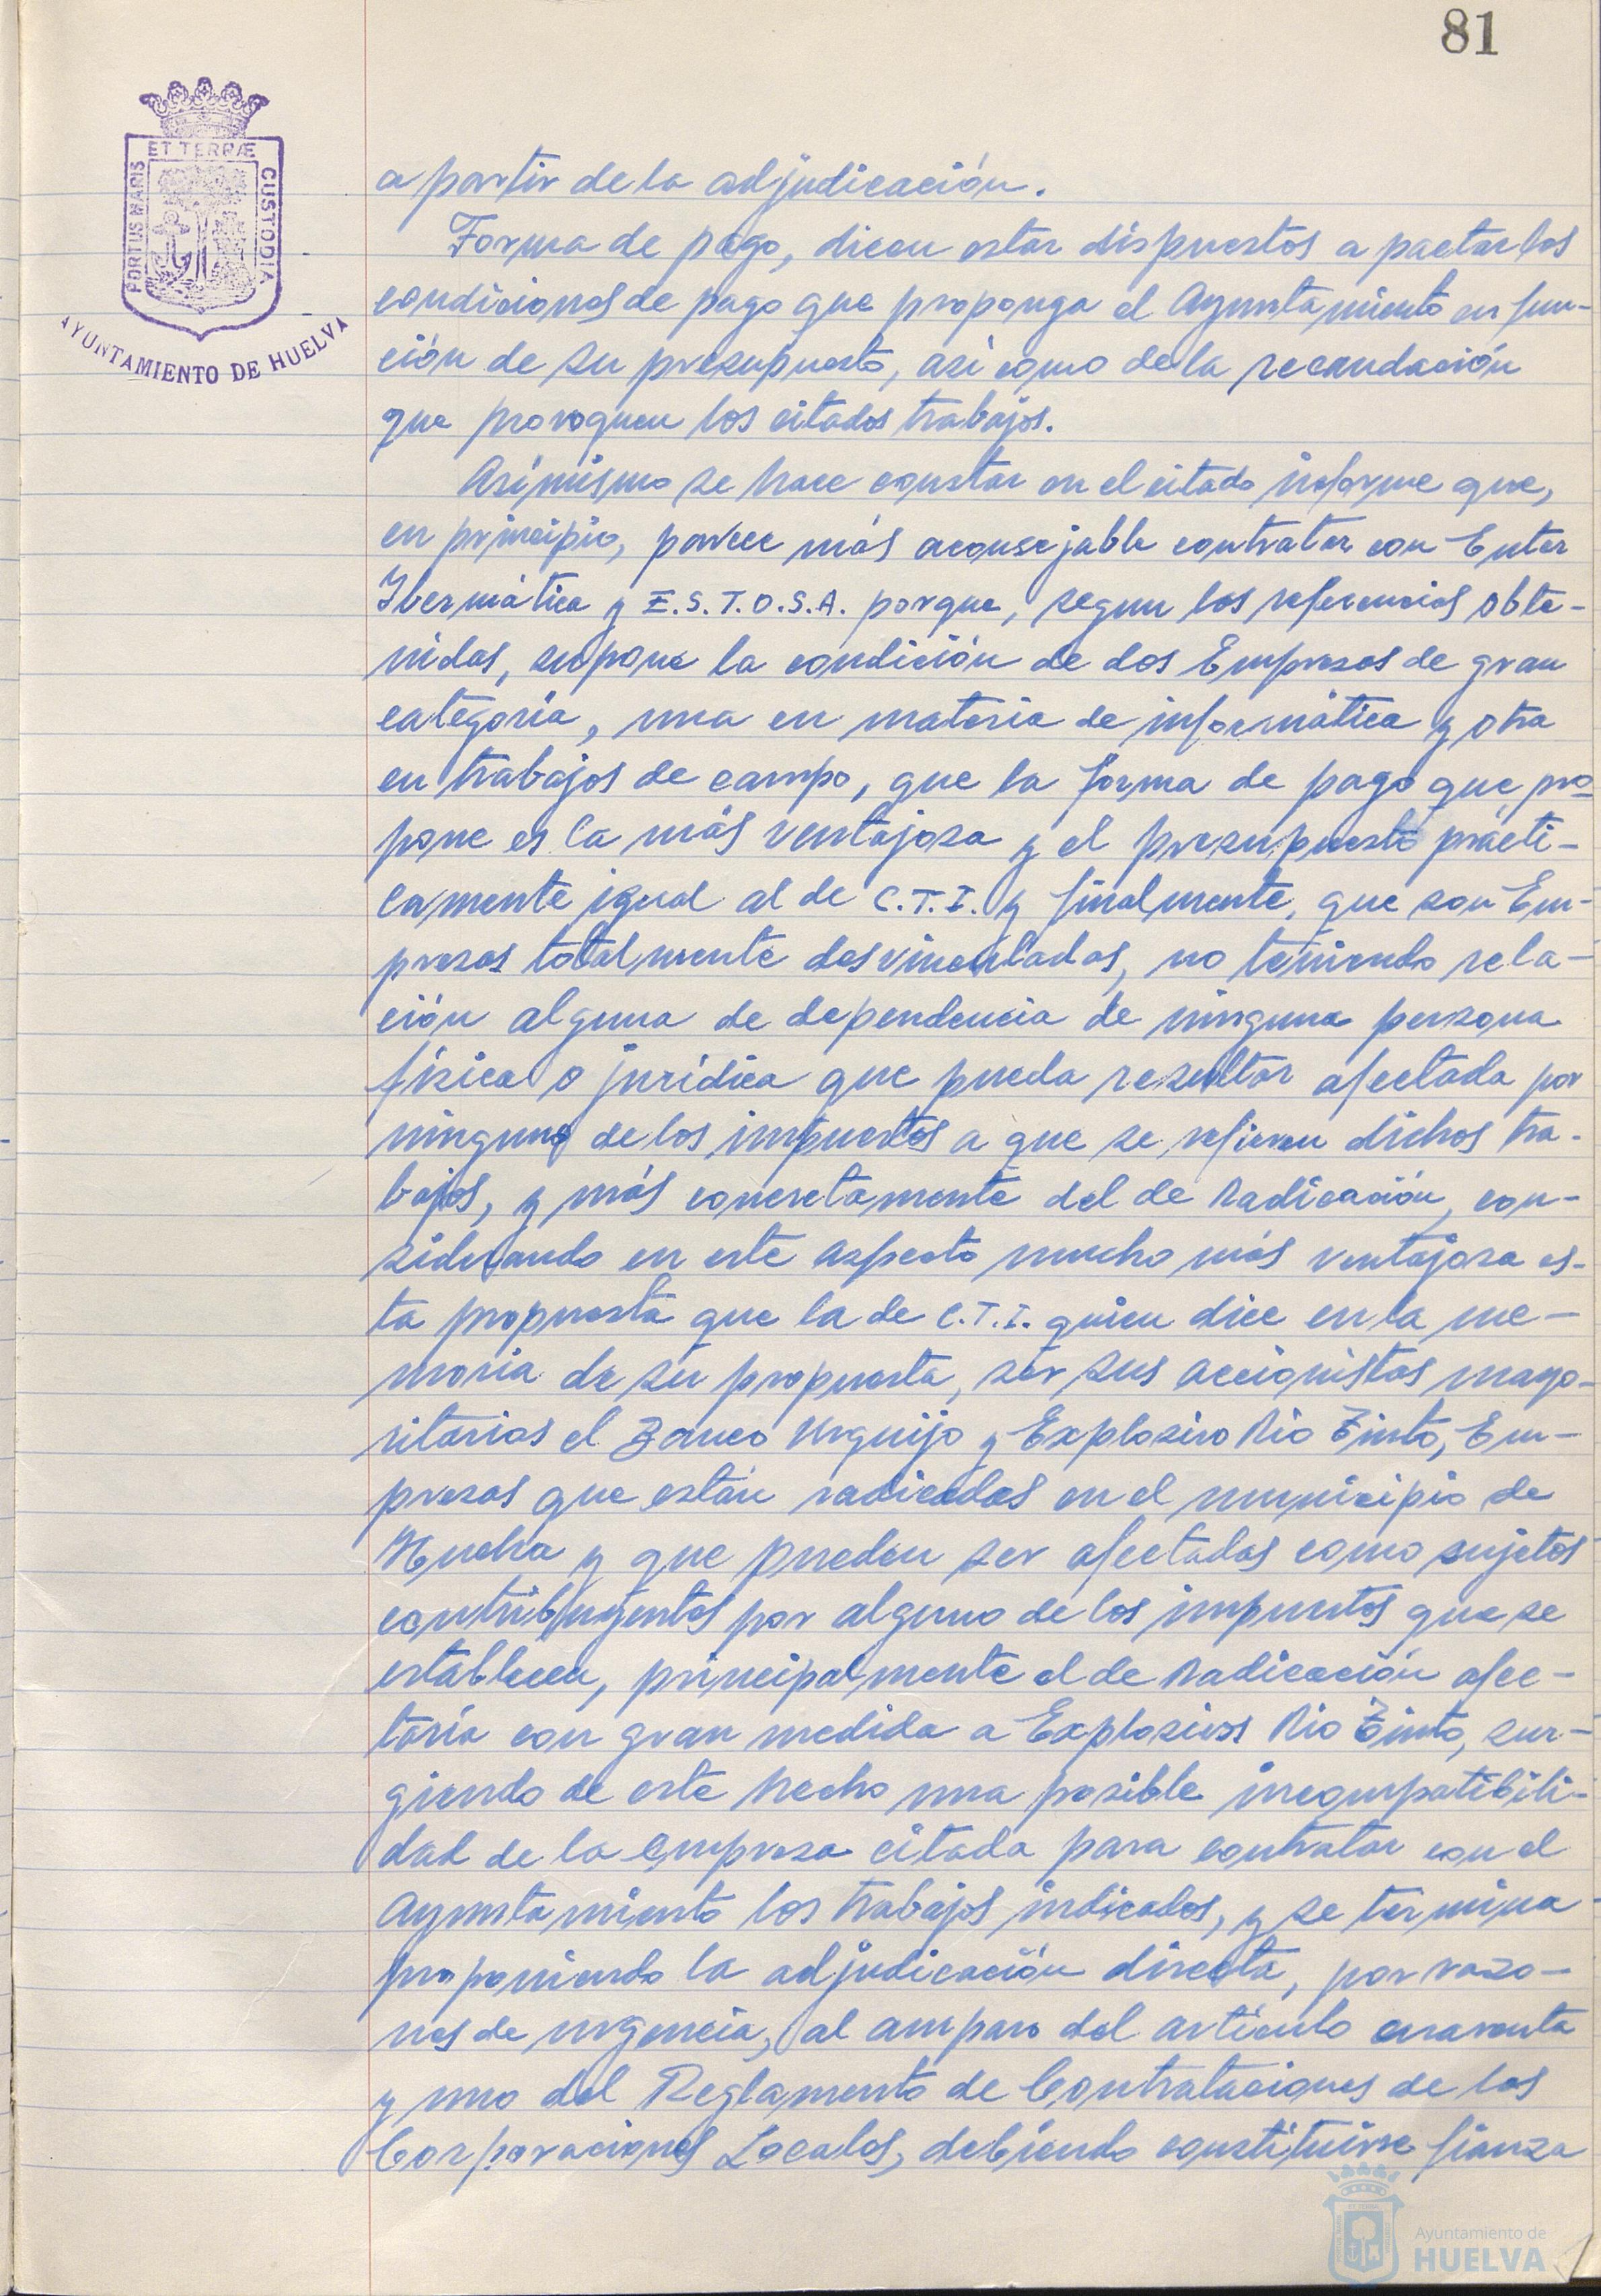 81
ET TERRÆ
PORTUS MARIS
CUSTODIA
AYUNTAMIENTO DE HUELVA
a partir de la adjudicación.
Forma de pago, dicen estar dispuestos a pactar las
condiciones de pago que proponga el Ayuntamiento en fun-
ción de su presupuesto, así como de la recaudación
que provoquen los citados trabajos.
Asimismo se hace constar en el citado informe que,
en principio, parece más aconsejable contratar con Enter
Ibermática y E.S.T.O.S.A. porque, segun las referencias obte-
nidas, supone la condición de dos Empresas de gran
categoría, una en materia de informática y otra
en trabajos de campo, que la forma de pago que pro-
pone es la más ventajosa y el presupuesto prácti-
camente igual al de C.T.I. y finalmente, que son Em-
presas totalmente desvinculadas, no teniendo rela-
ción alguna de dependencia de ninguna persona
física o jurídica que pueda resultar afectada por
ninguno de los impuestos a que se refieren dichos tra-
bajos, y más concretamente del de Radicación, con-
siderando en este aspecto mucho más ventajosa es-
ta propuesta que la de C.T.I. quien dice en la me-
moria de su propuesta, ser sus accionistas mayo-
ritarios el Banco Urquijo y Explosivo Rio Tinto, Em-
presas que están radicadas en el municipio de
Huelva y que pueden ser afectadas como sujetos
contribuyentes por alguno de los impuestos que se
establecen, principalmente el de Radicación afec-
taría con gran medida a Explosivos Rio Tinto, sur-
giendo de este hecho una posible incompatibili-
dad de la empresa citada para contratar con el
Ayuntamiento los trabajos indicados, y se termina
proponiendo la adjudicación directa, por razo-
nes de urgencia, al amparo del artículo cuarenta
y uno del Reglamento de Contrataciones de las
Corporaciones Locales, debiendo constituirse fianza
Ayuntamiento de
HUELVA